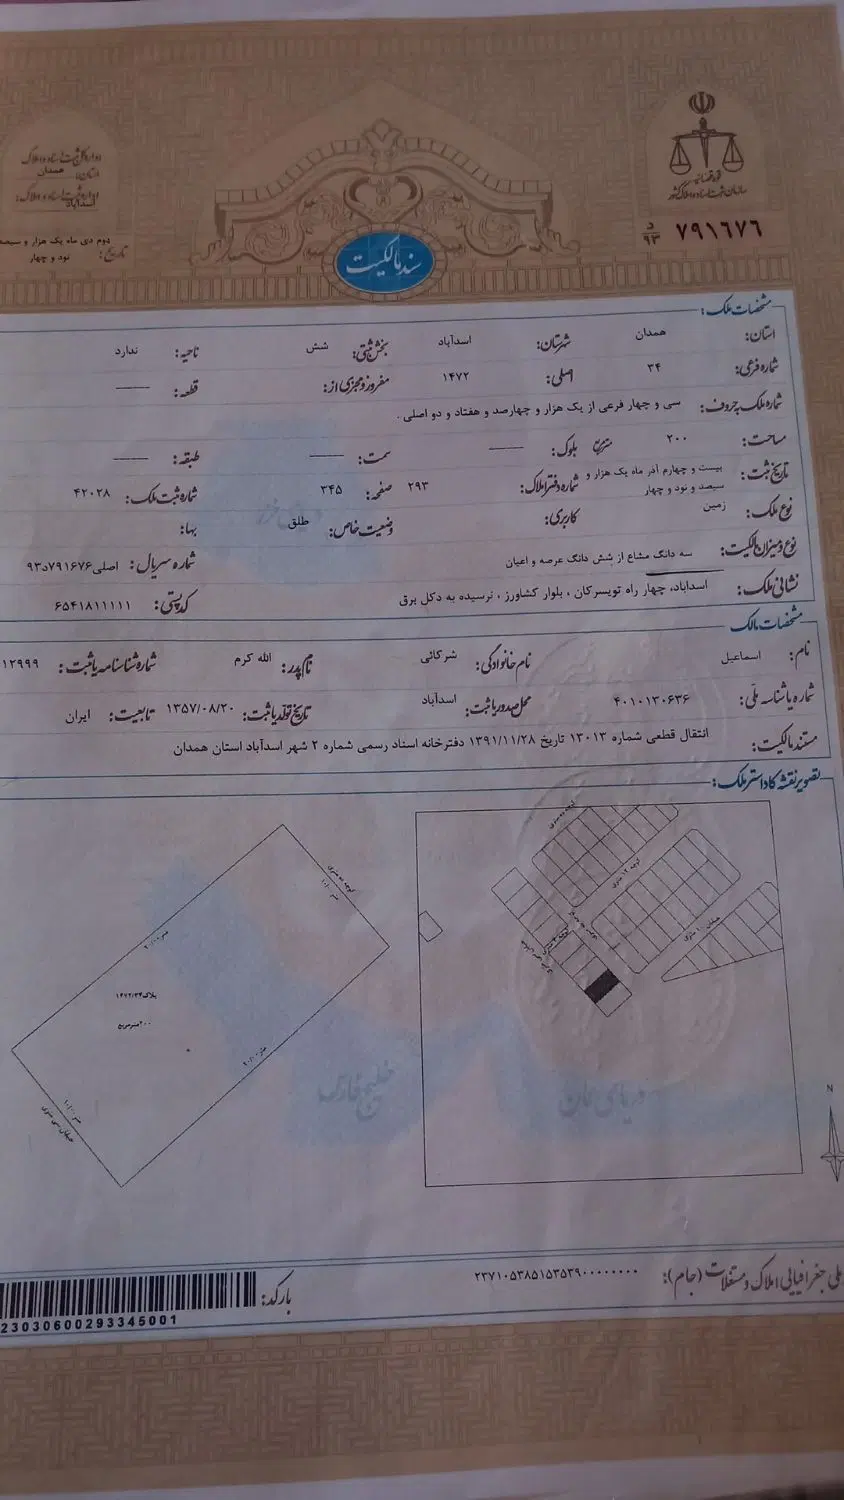 قوه قضائیه
سازمان ثبت اسناد و املاک کشور
۷۹۱۶۷۶ د ۹۳
اداره کل ثبت اسناد و املاک
استان: همدان
اداره ثبت اسناد و املاک:
اسدآباد
تاریخ: دوم دی ماه یک هزار و سیصد
نود و چهار
سند مالکیت
مشخصات ملک:
استان: همدان شهرستان: اسدآباد بخش ثبتی: شش ناحیه: ندارد
شماره فرعی: ۳۴ اصلی: ۱۴۷۲ مفروز و مجزی از: قطعه: ——
شماره ملک به حروف: سی و چهار فرعی از یک هزار و چهارصد و هفتاد و دو اصلی .
مساحت: ۲۰۰ مترمربع بلوک: —— سمت: —— طبقه: ——
تاریخ ثبت: بیست و چهارم آذر ماه یک هزار و سیصد و نود و چهار شماره دفتر املاک: ۲۹۳ صفحه: ۳۴۵ شماره ثبت ملک: ۴۲۰۲۸
نوع ملک: زمین کاربری: وضعیت خاص: طلق بها:
نوع و میزان مالکیت: سه دانگ مشاع از شش دانگ عرصه و اعیان شماره سریال: اصلی ۷۹۱۶۷۶د۹۳
نشانی ملک: اسدآباد، چهار راه تویسرکان ، بلوار کشاورز ، نرسیده به دکل برق کدپستی: ۶۵۴۱۸۱۱۱۱۱
مشخصات مالک
نام: اسماعیل نام خانوادگی: شرکائی نام پدر: الله کرم شماره شناسنامه یا ثبت: ۱۲۹۹۹
شماره یا شناسه ملی: ۴۰۱۰۱۳۰۶۳۶ محل صدور یا ثبت: اسدآباد تاریخ تولد یا ثبت: ۱۳۵۷/۰۸/۲۰ تابعیت: ایران
مستند مالکیت: انتقال قطعی شماره ۱۳۰۱۳ تاریخ ۱۳۹۱/۱۱/۲۸ دفترخانه اسناد رسمی شماره ۲ شهر اسدآباد استان همدان
تصویر نقشه کاداستر ملک:
کوچه ۱۲ متری
خیابان ۱۰ متری
۲۰/۰۰ متر
پلاک ۱۴۷۲/۳۴
۲۰۰ مترمربع
۲۰/۰۰ متر
۱۰/۰۰ متر
خیابان سی متری
۱۰/۰۰ متر
خلیج فارس
دریای عمان
N
ملی جغرافیایی املاک و مستغلات (جام): ۲۳۷۱۰۵۳۸۵۱۵۳۵۳۹۰۰۰۰۰۰۰۰۰
بارکد:
23030600293345001